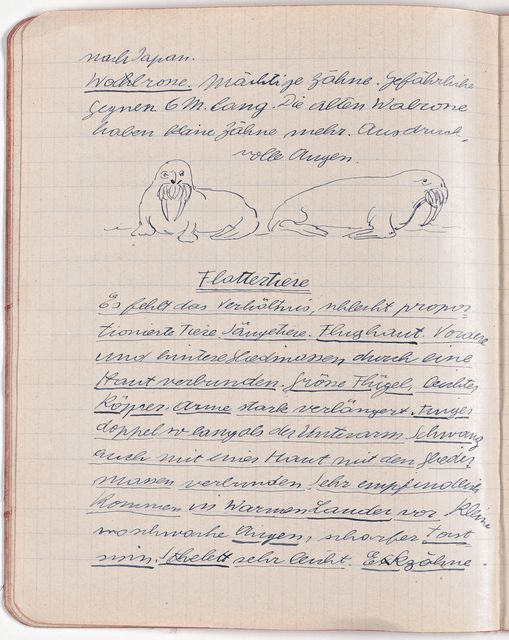 nach Japan.
Wahlrone. Mächtige Zähne. Gefährliche
Gegner. 6 M. lang. Die alten Walrone
haben keine Zähne mehr. Ausdruck-
volle Augen.
Flattertiere
Es fehlt das Verhältnis, schlecht propor-
tionierte Tiere. Säugetiere. Flughaut. Vordere
und hintere Gliedmassen durch eine
Haut verbunden. Grösse Flügel, leichtes
Körper. Arme stark verlängert. Finger
doppel so lang als der Unterarm. Schwanz
auch mit einer Haut mit den Glieder
massen verbunden. Sehr empfindlich
Kommen in Warmen Länder vor. Kleine
schwache Augen, scharfer Tast
sinn. Skelett sehr leicht. Eckzähne.